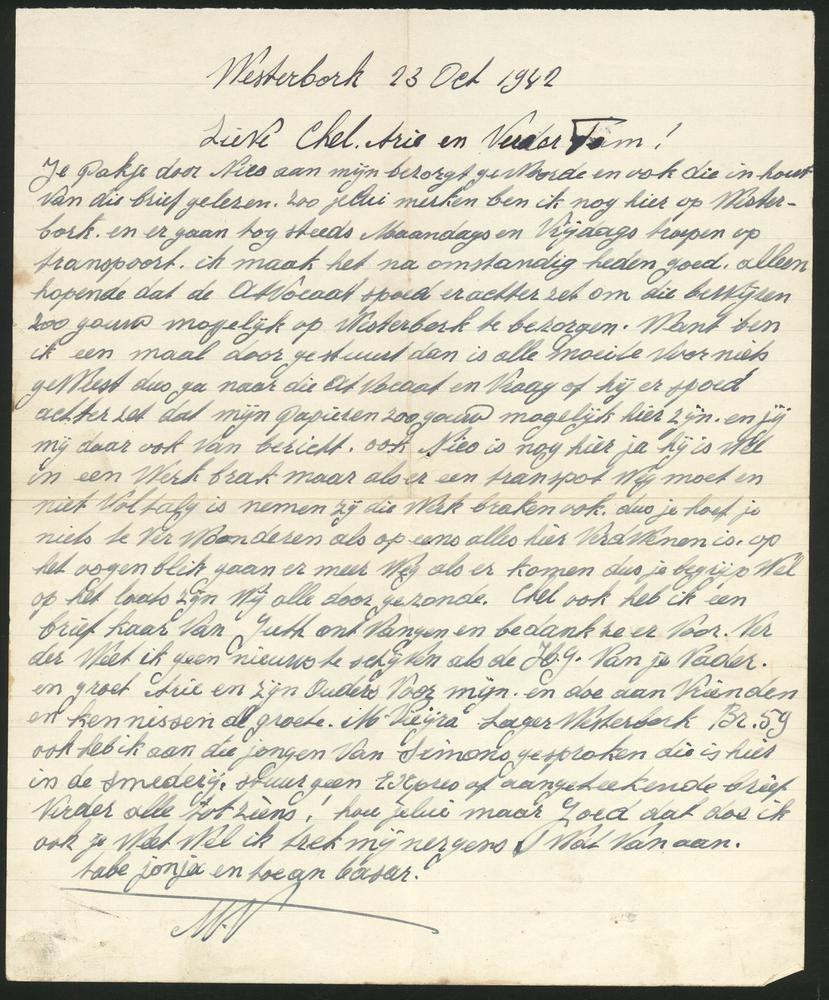 Westerbork 23 Oct 1942
Lieve Chel. Arie en Verder Fam!
Je Pakje door Nico aan mijn bezorgt geWorde en ook die in hout
Van die brief gelezen. zoo jelui merken ben ik nog hier op Wester-
bork. en er gaan tog steeds Maandags en Vrijdags troepen op
transpoort. ik maak het na omstandig heden goed. alleen
hopende dat de AtVocaat spoed erachter zet om die bewijzen
zoo gouw mogelijk op Westerbork te bezorgen. Want ben
ik een maal door gestuurt dan is alle moeite Voor niets
geWest dus ga naar die At Vocaat en Vraag of hij er spoed
achter zet dat mijn Papieren zoo gouw mogelijk hier zijn. en jij
mij daar ook van bericht. ook Nico is nog hier ja hij is Wel
in een Werk brak maar als er een transpot Weg moet en
niet Voltalig is nemen zij die Werk braken ook. dus je hoef je
niets te Ver Wonderen als op eens alles hier VerdWenen is. op
het oogen blik gaan er meer Weg als er komen dus je begrijp Wel
op het laats zijn Wij alle door gezonde. Chel ook heb ik een
brief kaar Van Juth ont Vangen en bedank ze er Voor. Ver
der Weet ik geen nieuws te schrijfen als de H.G. Van je Vader.
en groet Arie en zijn Ouders Voor mijn. en doe aan Vrienden
en kennissen de groete. M Vieijra Lager Westerbork Br. 59
ook heb ik aan die jongen Van Simons gesproken die is hier
in de smederij. stuur geen Expres of aangeteekende brief
Verder alle tot ziens! hou jelui maar goed dat doe ik
ook je Weet Wel ik trek mij nergens Wat Van aan.
tabe jonja en toean basar.
M.V